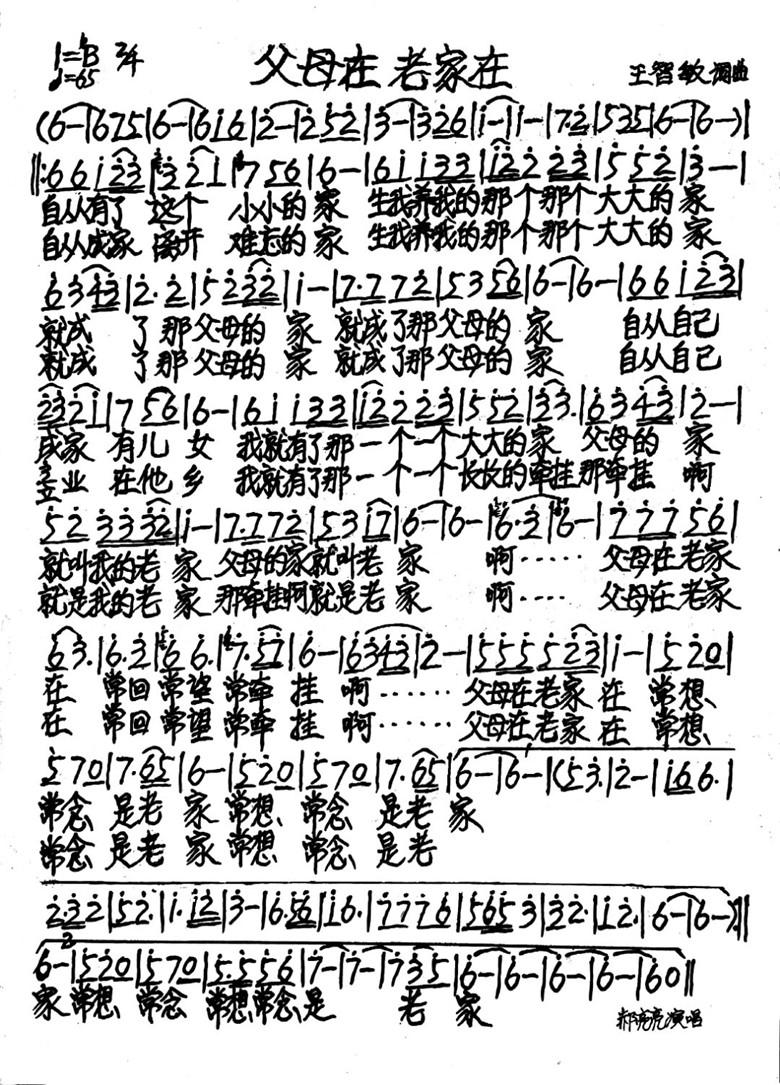 1=♭B 2/4
♩=65
父母在 老家在
王智敏 词曲
(6-|675|6-|6i6|2-|252|3-|326|i-|i-|72|535|6-|6-)|
‖:66i23|321|756|6-|6ii33|i2223|552|3-|
自从有了 这个 小小的 家 生我养我的那个那个大大的 家
自从成家 离开 难忘的 家 生我养我的那个那个大大的 家
6343|2.2|5232|i-|7.772|5356|6-|6-|66i23|
就成 了那父母的 家 就成了那父母的 家 自从自己
就成 了那父母的 家 就成了那父母的 家 自从自己
232i|756|6-|6ii33|i2223|552|33.|6343|2-|
成家 有儿 女 我就有了那一个一个大大的家 父母的 家
立业 在他乡 我就有了那一个一个长长的牵挂那牵挂 啊
523332|i-|7.772|53i7|6-|6-|6.3|6-|77756|
就叫我的老 家 父母的家就叫老 家 啊…… 父母在老家
就是我的老 家 那牵挂啊就是老 家 啊…… 父母在老家
63.|6.3|66.|7.57|6-|6343|2-|555523|i-|520|
在 常回常望 常牵 挂 啊…… 父母在老家 在 常想、
在 常回常望 常牵 挂 啊…… 父母在老家 在 常想、
570|7.65|6-|520|570|7.65|6-|6-|(53.|2-|i66.|
常念、是老 家 常想、常念、是老 家
常念、是老 家 常想、常念、是老
2.32|52.|i.i2|3-|6.56|i6.|7776|5653|32.|i2.|6-|6-):‖
6-|520|570|5.556|7-|7-|735|6-|6-|6-|6-|60‖
家 常想、常念 常想常念、是 老 家
郝亮亮演唱